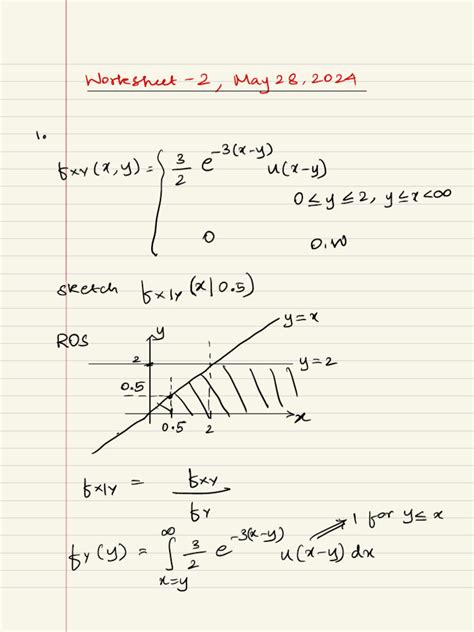 Worksheet - 2, May 28, 2024
1.
fxy(x,y) = { 3/2 e^-3(x-y) u(x-y)
0 ≤ y ≤ 2, y ≤ x < ∞
0 0.W
sketch fx|y (x|0.5)
ROS y y=x
2 y=2
0.5
0.5 2 x
fx|y = fxy / fy
fy(y) = ∫_{x=y}^{∞} 3/2 e^-3(x-y) u(x-y) dx ⇒ 1 for y ≤ x